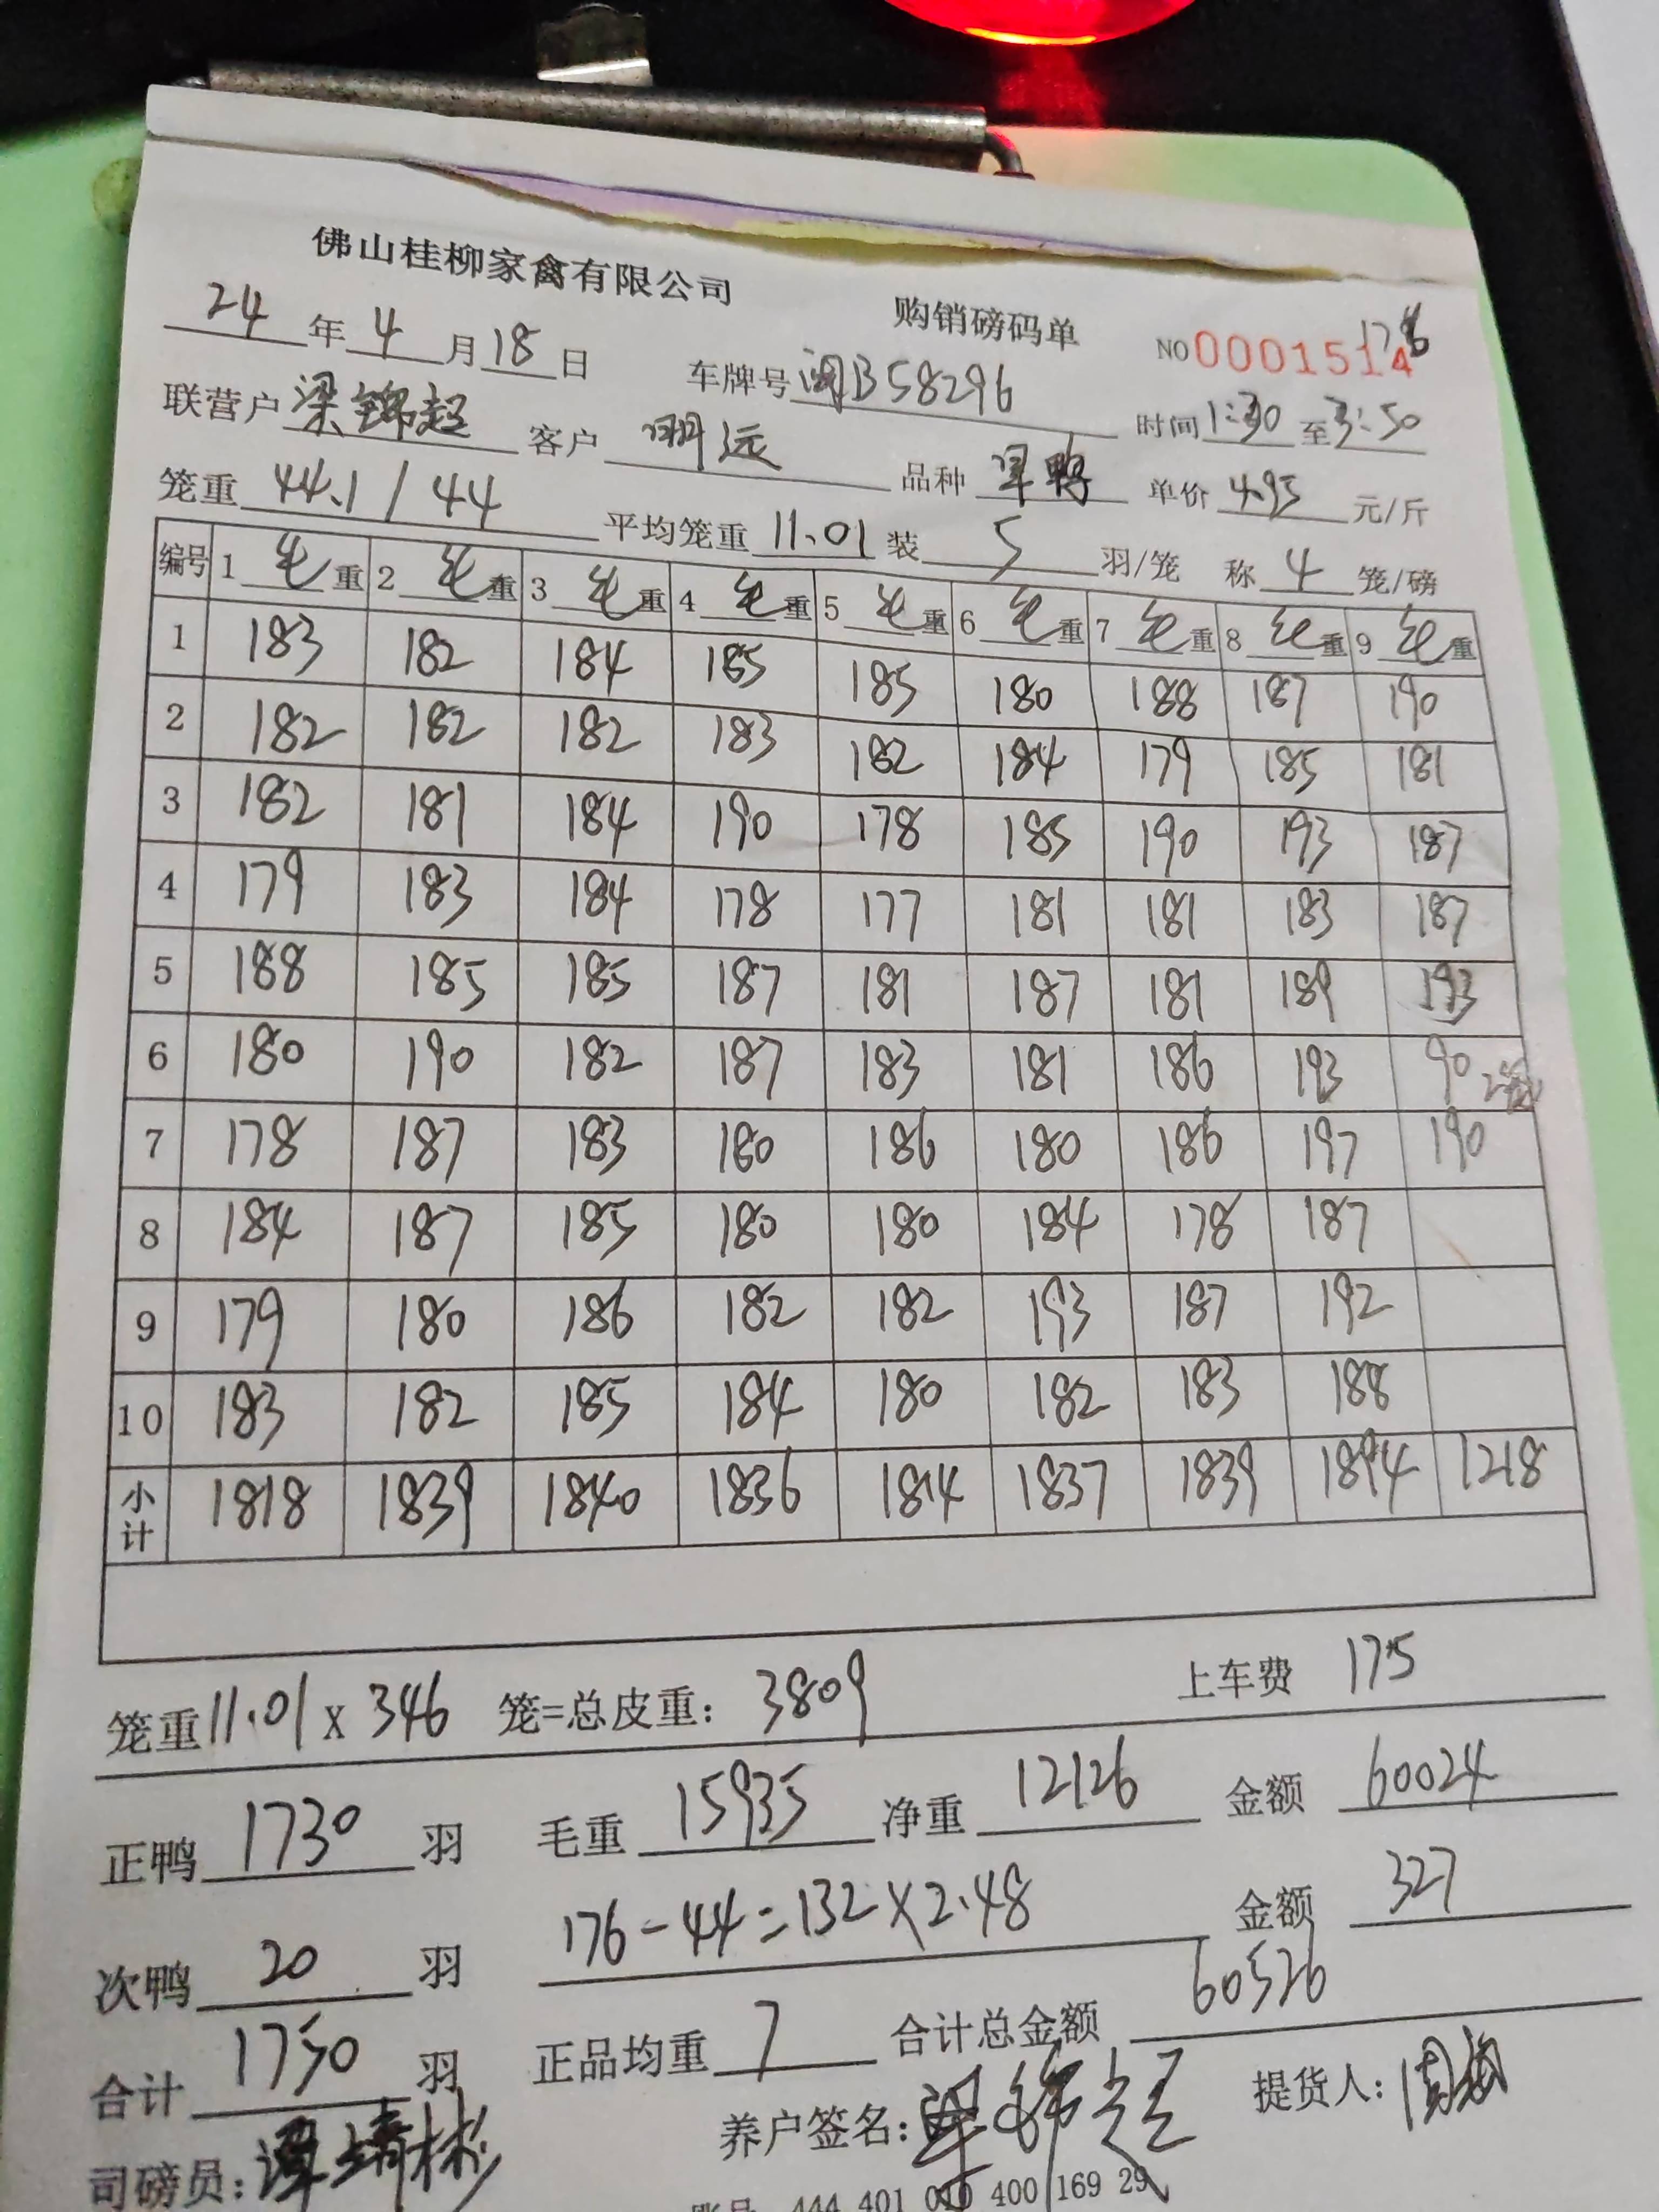 佛山桂柳家禽有限公司 购销磅码单 NO 0001514 176
24年4月18日 车牌号 闽B58296 时间 1:30 至 3:50
联营户 梁锦超 客户 明远 品种 单价 4.95 元/斤
笼重 44.1/44 平均笼重 11.01 装 5 羽/笼 称 4 笼/磅
编号 1 毛重 2 毛重 3 毛重 4 毛重 5 毛重 6 毛重 7 毛重 8 毛重 9 毛重
1 183 182 184 185 185 180 188 187 190
2 182 182 182 183 182 184 179 185 181
3 182 181 184 190 178 185 190 193 187
4 179 183 184 178 177 181 181 183 187
5 188 185 185 187 181 187 181 189 193
6 180 190 182 187 183 181 186 193 90 2笼
7 178 187 183 180 186 180 186 197 190
8 184 187 185 180 180 184 178 187
9 179 180 186 182 182 193 187 192
10 183 182 185 184 180 182 183 188
小计 1818 1839 1840 1836 1814 1837 1839 1894 1218
笼重 11.01 x 346 笼=总皮重: 3809 上车费 175
正鸭 1730 羽 毛重 15935 净重 12126 金额 60024
次鸭 20 羽 176-44=132×2.48 金额 327
合计 1750 羽 正品均重 7 合计总金额 60526
司磅员: 养户签名: 梁锦超 提货人:
账号 444 401 010 400 169 29